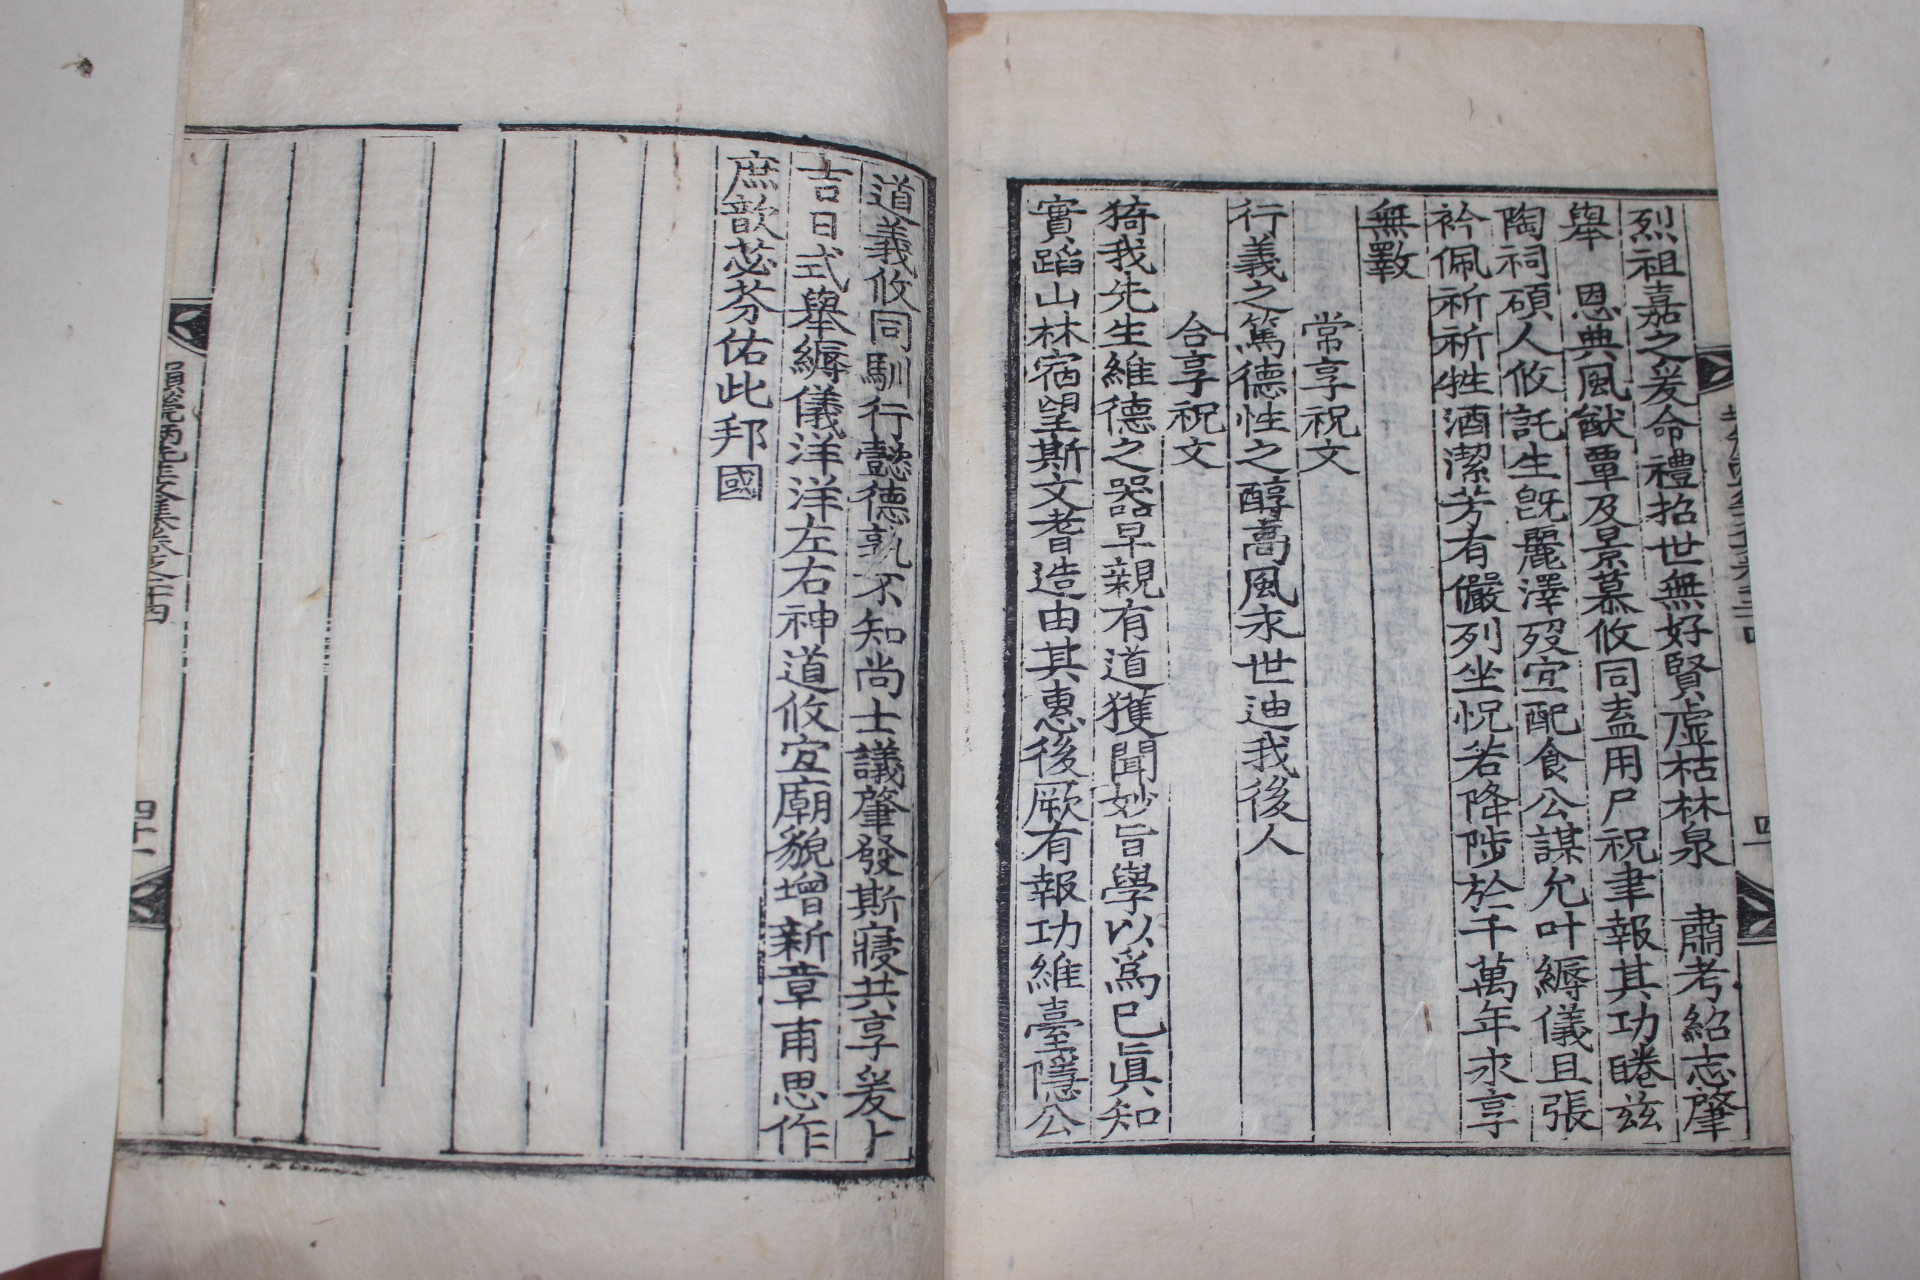 烈祖嘉之爰命禮招世無好賢虛枯林泉 肅考紹志肇
擧 恩典風猷覃及景慕攸同盍用尸祝聿報其功睠玆
陶祠碩人攸託生旣麗澤歿宜配食公謀允叶縟儀且張
衿佩祈祈牲酒潔芳有儼列坐怳若降陟於千萬年永享
無斁
常享祝文
行義之篤德性之醇高風永世迪我後人
合享祝文
猗我先生維德之器早親有道獲聞妙旨學以爲已眞知
實蹈山林宿望斯文耆造由其惠後厥有報功維臺隱公
道義攸同馴行懿德孰不知尚士議肇發斯寢共享爰卜
吉日式擧縟儀洋洋左右神道攸宜廟貌增新章甫思作
庶歆苾芬佑此邦國
先生文集卷之二十四
四十一